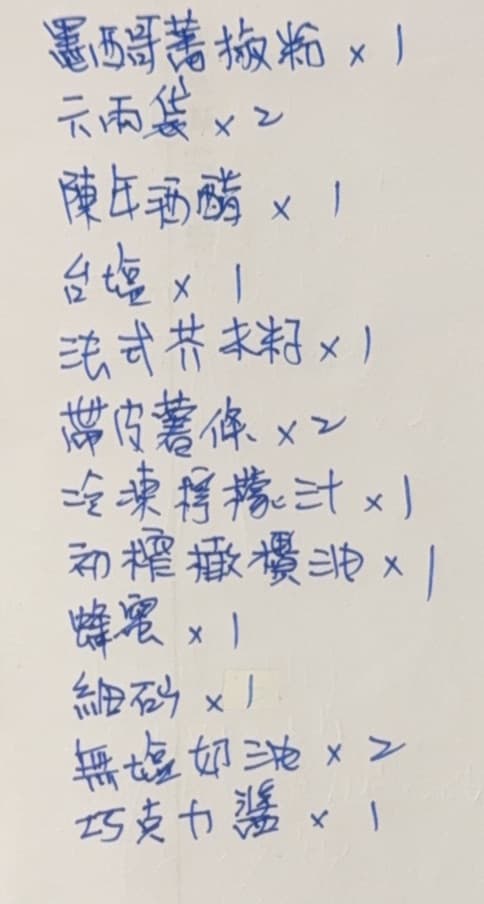 墨西哥薯椒粉 x 1
六兩袋 x 2
陳年酒醋 x 1
台塩 x 1
法式芥末籽 x 1
帶皮薯條 x 2
冷凍檸檬汁 x 1
初榨橄欖油 x 1
蜂蜜 x 1
細砂 x 1
無塩奶油 x 2
巧克力醬 x 1